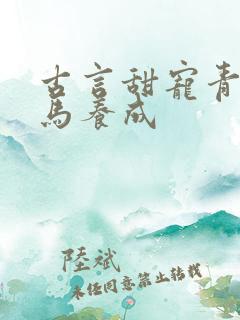 古言甜寵青
馬養成
陸斌
未经同意禁止转载